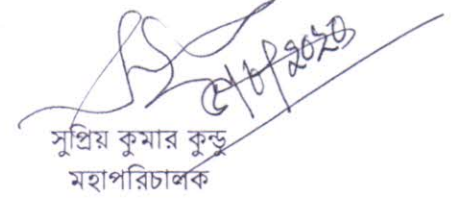 ৫/৮/২০২০
সুপ্রিয় কুমার কুন্ডু
মহাপরিচালক